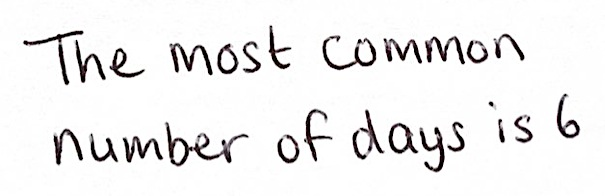 The most common
number of days is 6